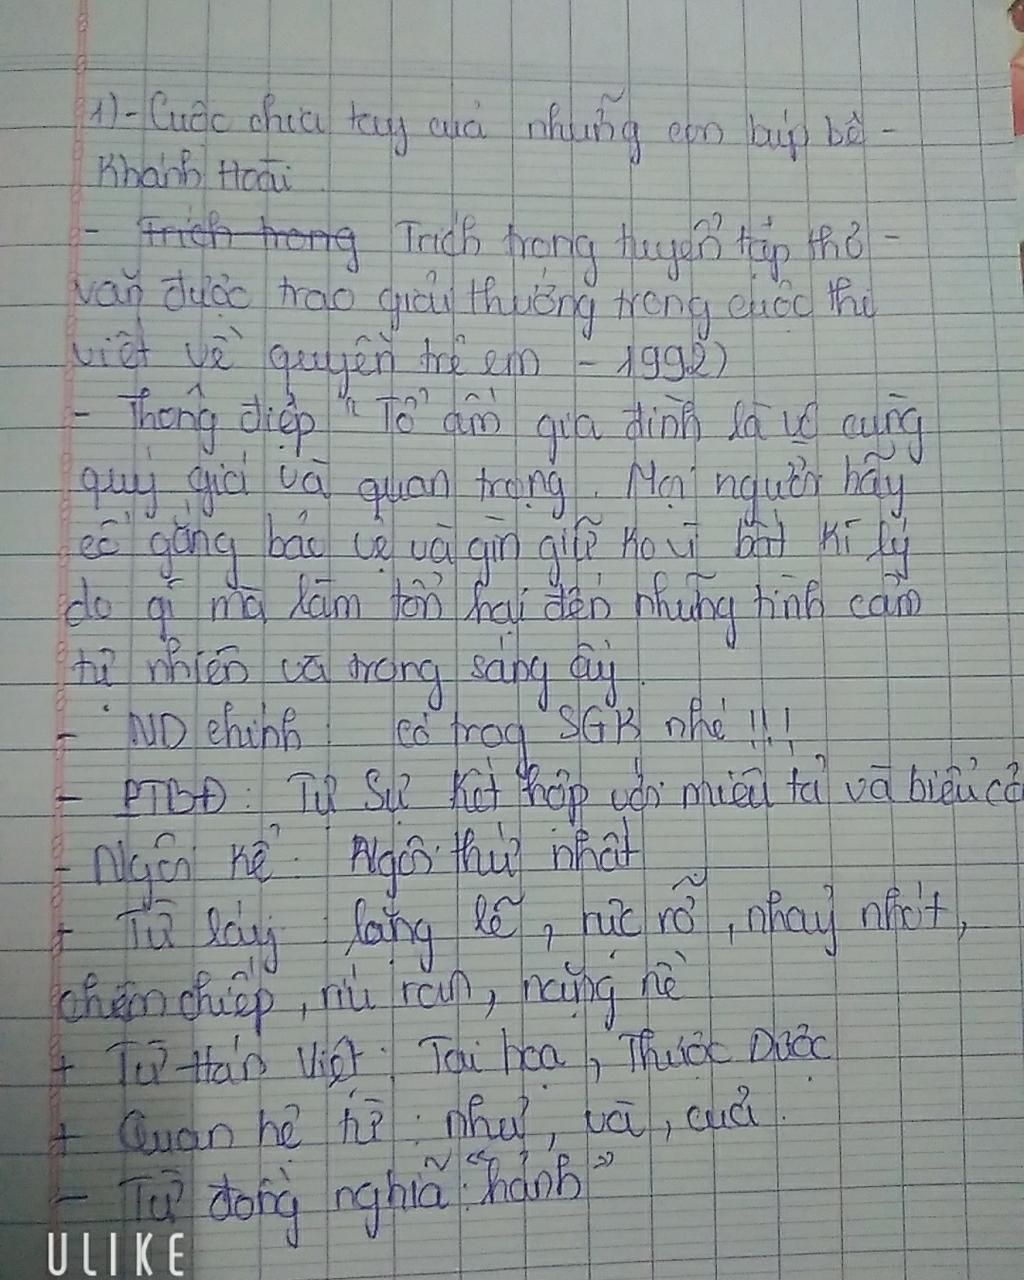 1)- Cuộc chia tay của những con búp bê -
Khánh Hoài
- Trích trong Trích trong tuyển tập thơ -
văn được trao giải thưởng trong cuộc thi
viết về quyền trẻ em - 1992)
- Thông điệp " Tổ ấm gia đình là vô cùng
quý giá và quan trọng. Mọi người hãy
cố gắng bảo vệ và gìn giữ ko vì bất kì lý
do gì mà làm tổn hại đến những tình cảm
tự nhiên và trong sáng ấy.
- ND chính : có trog SGK nhé !!!
- PTBĐ : Tự sự kết hợp với miêu tả và biểu cả
- Ngôi kể : Ngôi thứ nhất
+ Từ láy : lặng lẽ, rực rỡ, nhảy nhót,
chiêm chiếp, ríu ran, nặng nề
+ Từ Hán Việt : Tai hoạ, Thược Dược
+ Quan hệ từ : như, và, của.
- Từ đồng nghĩa : "hảnh"
ULIKE